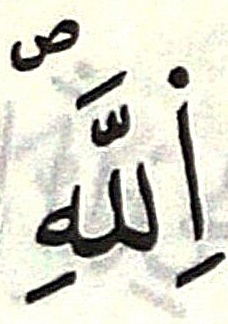 اِللَّهِ ص